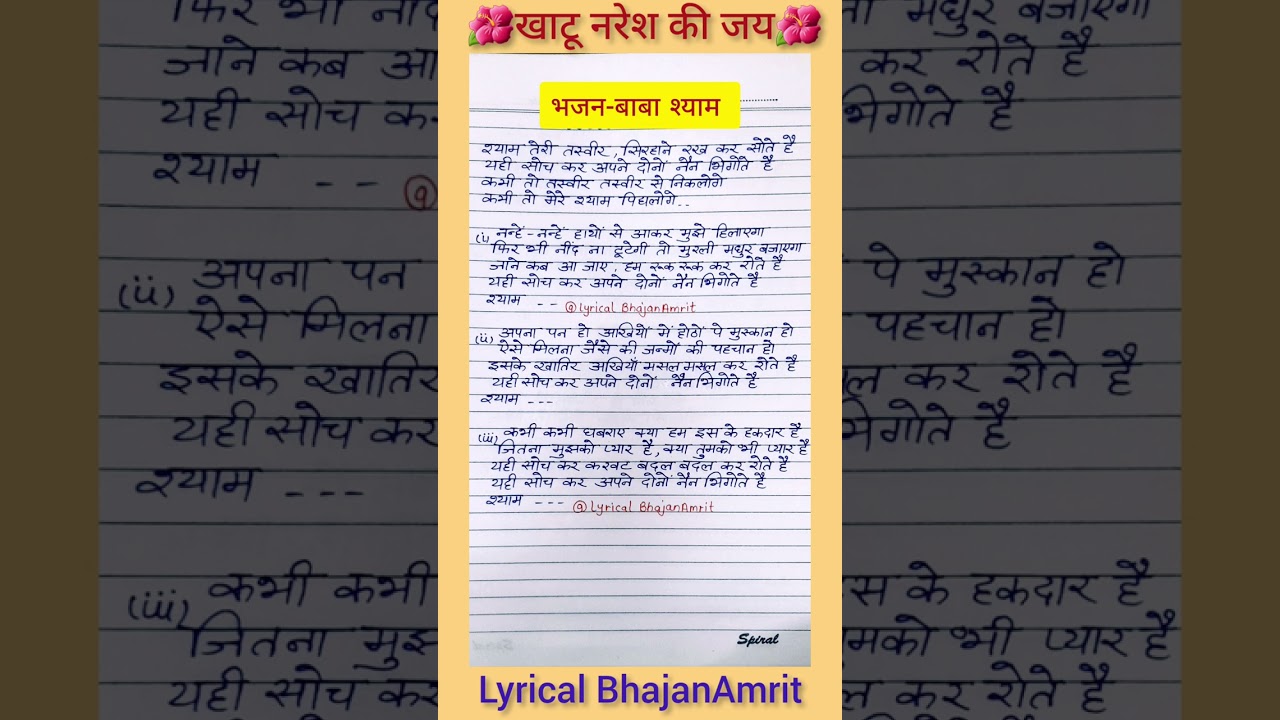 🌺खाटू नरेश की जय🌺
भजन-बाबा श्याम
श्याम तेरी तस्वीर , सिरहाने रख कर सोते है
यही सोच कर अपने दोनो नैन भिगोते है
कभी तो तस्वीर तस्वीर से निकलोगे
कभी तो मेरे श्याम पिघलोगे..
(i) नन्हें-नन्हें हाथों से आकर मुझे हिलाएगा
फिर भी नींद ना टूटेगी तो मुरली मधुर बजाएगा
जाने कब आ जाए , हम रूक रूक कर रोते है
यही सोच कर अपने दोनो नैन भिगोते है
श्याम -- @Lyrical BhajanAmrit
(ii) अपना पन हो अखियों में होठों पे मुस्कान हो
ऐसे मिलना जैसे की जन्मों की पहचान हो
इसके खातिर अखियाँ मसल मसल कर रोते है
यही सोच कर अपने दोनो नैन भिगोते है
श्याम ---
(iii) कभी कभी घबराए क्या हम इस के हकदार है
जितना मुझको प्यार है, क्या तुमको भी प्यार है
यही सोच कर करवट बदल बदल कर रोते है
यही सोच कर अपने दोनो नैन भिगोते है
श्याम --- @Lyrical BhajanAmrit
Spiral
Lyrical BhajanAmrit